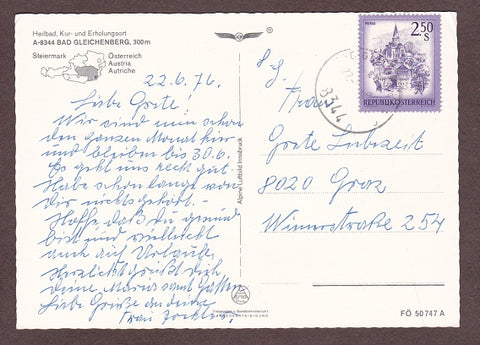 Heilbad, Kur- und Erholungsort
A-8344 BAD GLEICHENBERG, 300m
Steiermark
Österreich
Austria
Autriche
22.6.76.
Liebe Grete!
Wir sind nun schon
den ganzen Monat hier
und bleiben bis 30.6.
Es geht uns recht gut.
Habe schon lange von
dir nichts gehört.-
Hoffe, daß du gesund
bist und vielleicht
auch auf Urlaub.
Herzlichst grüßt dich
deine Maria samt Gatten.
Liebe Grüße an deine
Frau
Alpine Luftbild Innsbruck
2.50
S
REPUBLIK ÖSTERREICH
8344
Frau
Grete
8020 Graz
254
FÖ 50747 A